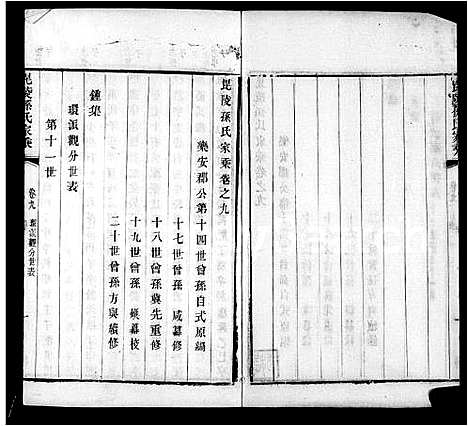 毘陵孫氏家乘卷之九
樂安郡公第十四世曾孫自式原編
十七世曾孫 咸纂修
十八世曾孫奠先重修
十九世曾孫 纂校
二十世曾孫方與續修
鍾集
環派觀分世表
第十一世
毘陵孫氏家乘
卷九
環派觀分世表